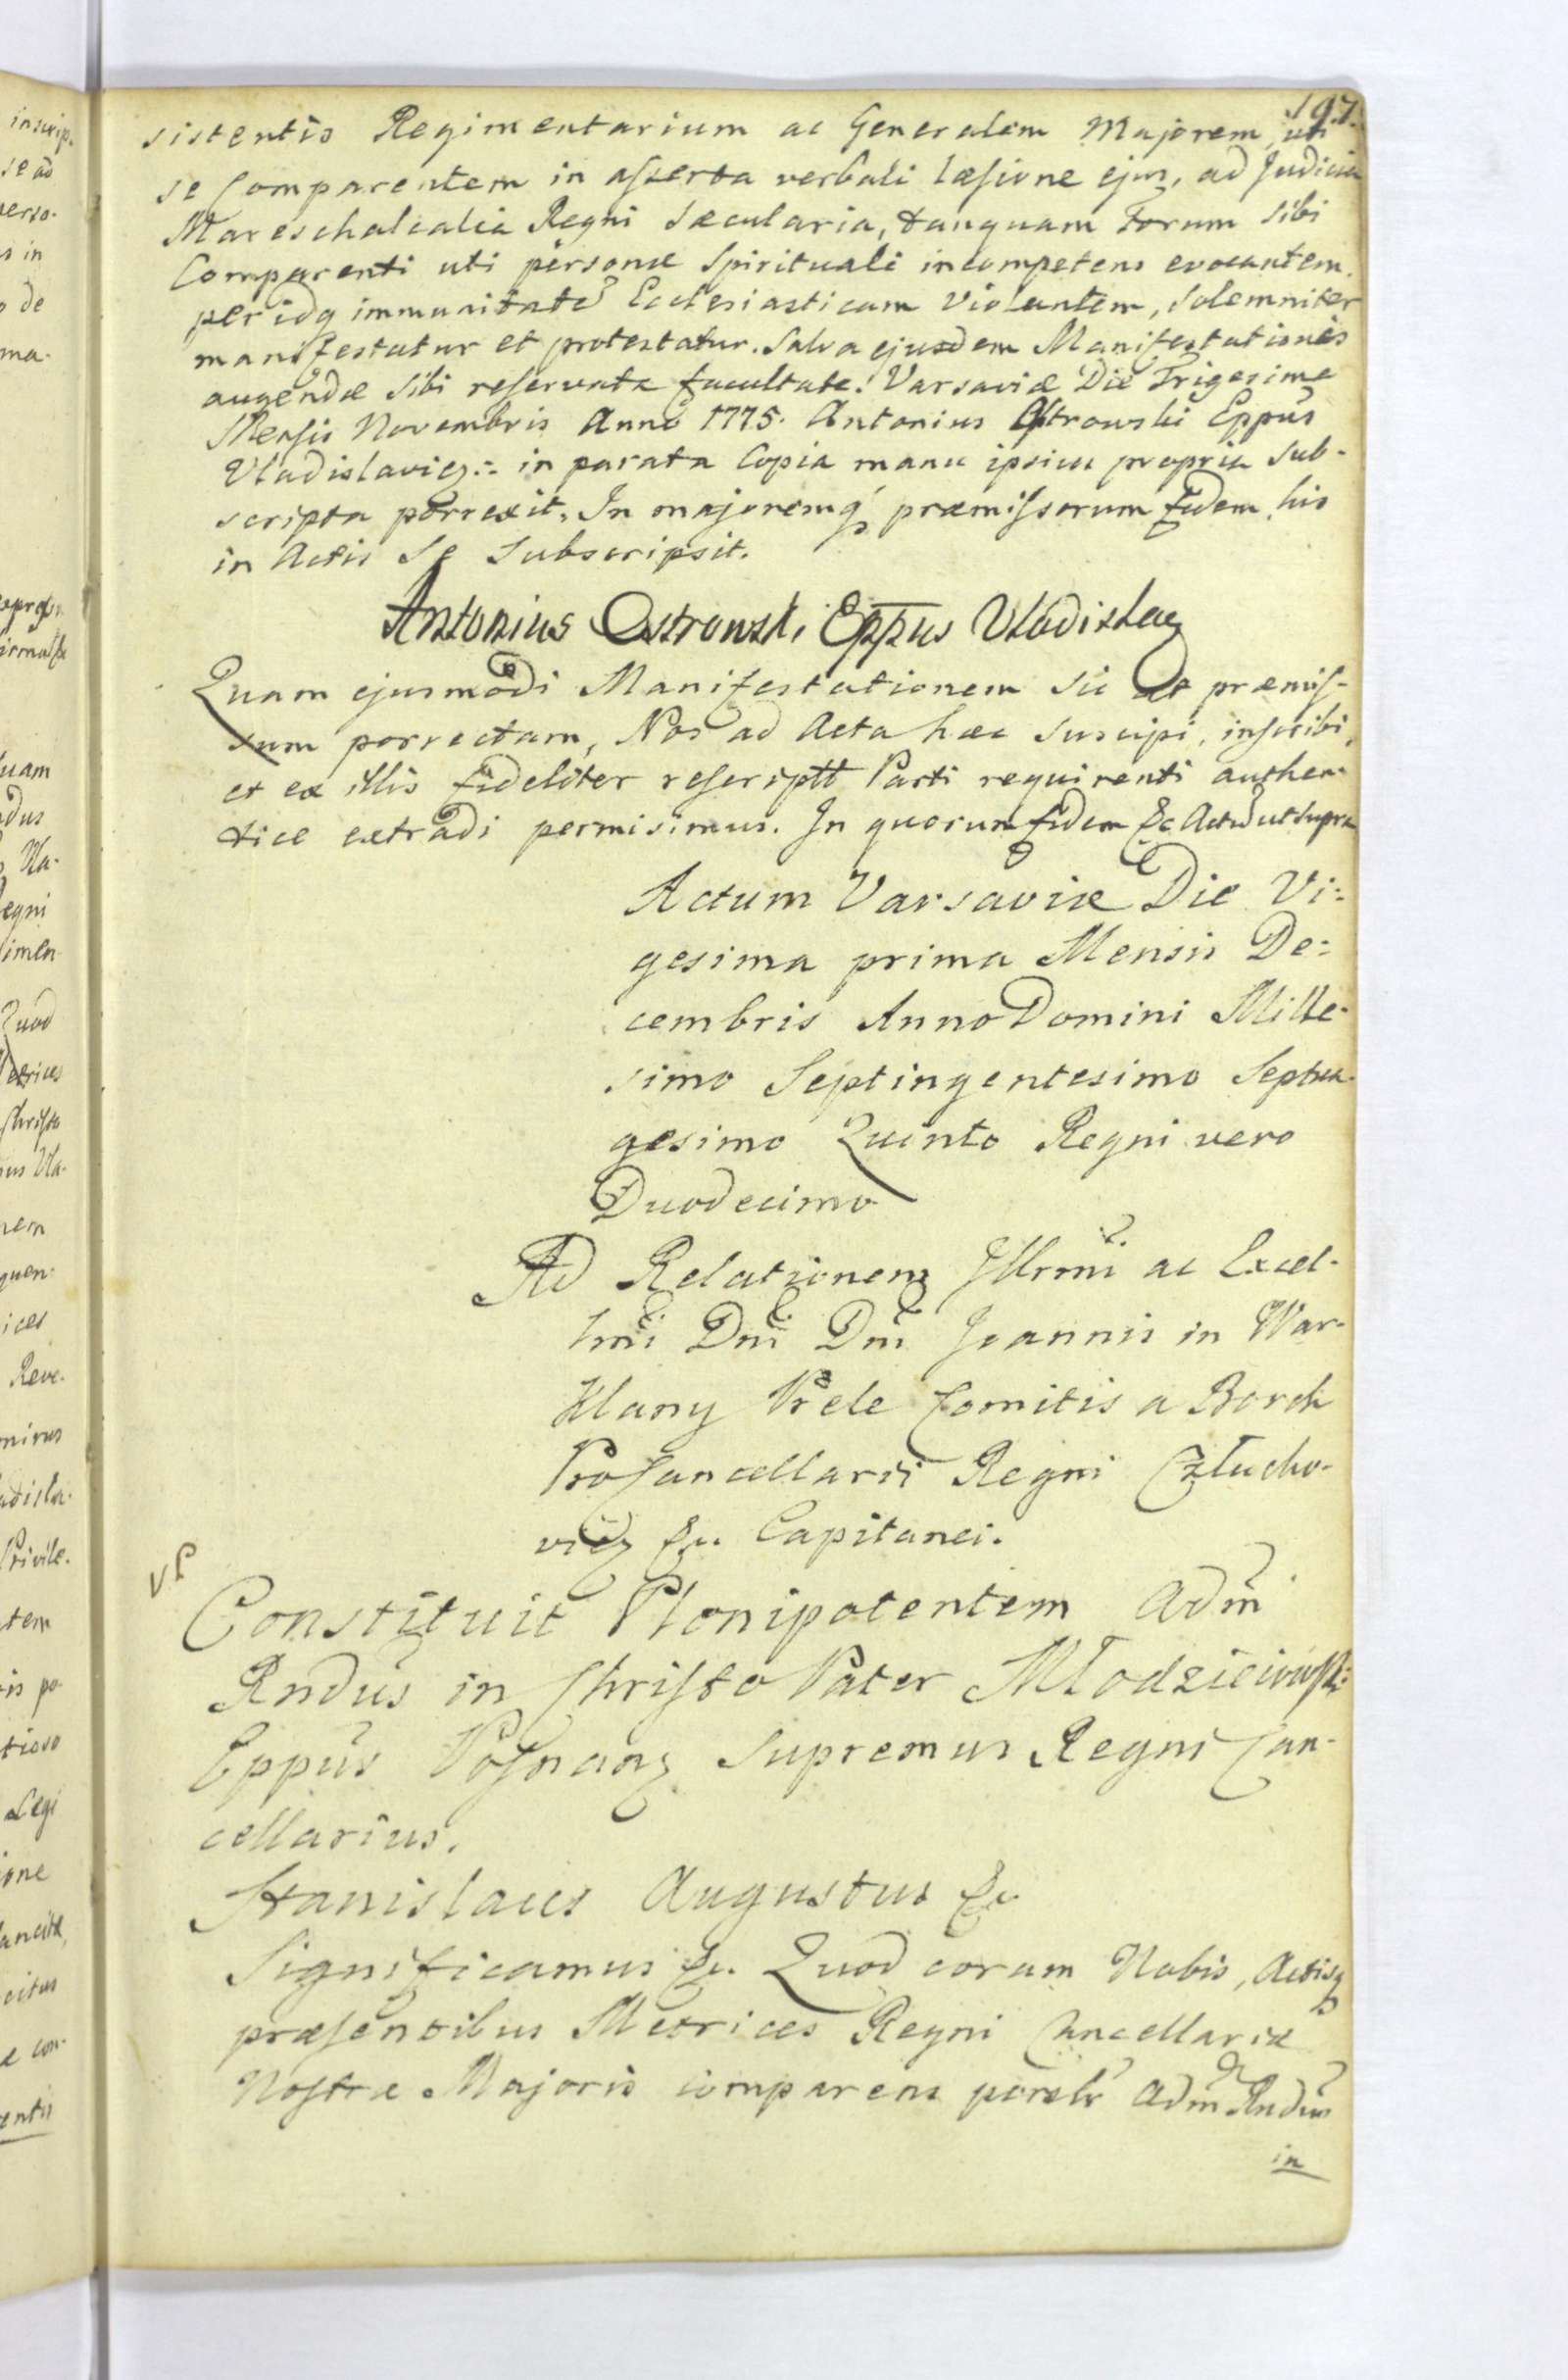 197.
sistentis Regimentarium ac Generalem Majorem, uti
se Comparentem in asserta verbali læsione ejus, ad Judicia
Mareschalcalia Regni Sæcularia, tanquam Forum sibi
Comparenti uti personæ Spirituali incompetens evocantem.
per idq immunitatē Ecclesiasticam Violantem, solemniter
manifestatur et protestatur. Salva ejusdem Manifestationis
augendæ sibi reservata facultate. Varsaviæ Die Trigesima
Mensis Novembris Anno 1775. Antonius Ostrowski Eppūs
Vladislavieȝ.:. in parata Copia manu ipsius propria sub-
scripta porrexit. In majoremq præmissorum fidem his
in Actis Se Subscripsit.
Antonius Ostrowski Eppus Vladislaȝ
Quam ejusmodi Manifestationem sic ut præmis-
sum porrectam, Nos ad Acta hæc suscipi, inscribi,
et ex illis fideliter rescriptt Parti requirenti authen-
tice extradi permisimus. In quorum fidem &c Actū ut supra
Actum Varsaviæ Die Vi:
gesima prima Mensis De:
cembris Anno Domini Mille-
simo Septingentesimo Septua-
gesimo Quinto Regni vero
Duodecimo
Ad Relationem Jllrmi ac Excel-
lmi Dni Dni Joannis in War-
klany Prele Comitis a Borch
ProCancellarii Regni Człucho-
vieȝ &c. Capitanei.
Constituit Plenipotentem Adm̃
Rndūs in Christo Pater Młodzieiowski
Eppūs Posnanȝ Supremus Regni Can-
cellarius.
Stanislaus Augustus &c
Significamus &c. Quod coram Nobis, Actisq
præsentibus Metrices Regni Cancellariæ
Nostræ Majoris comparens perslr Adm̃ Rndūs
in